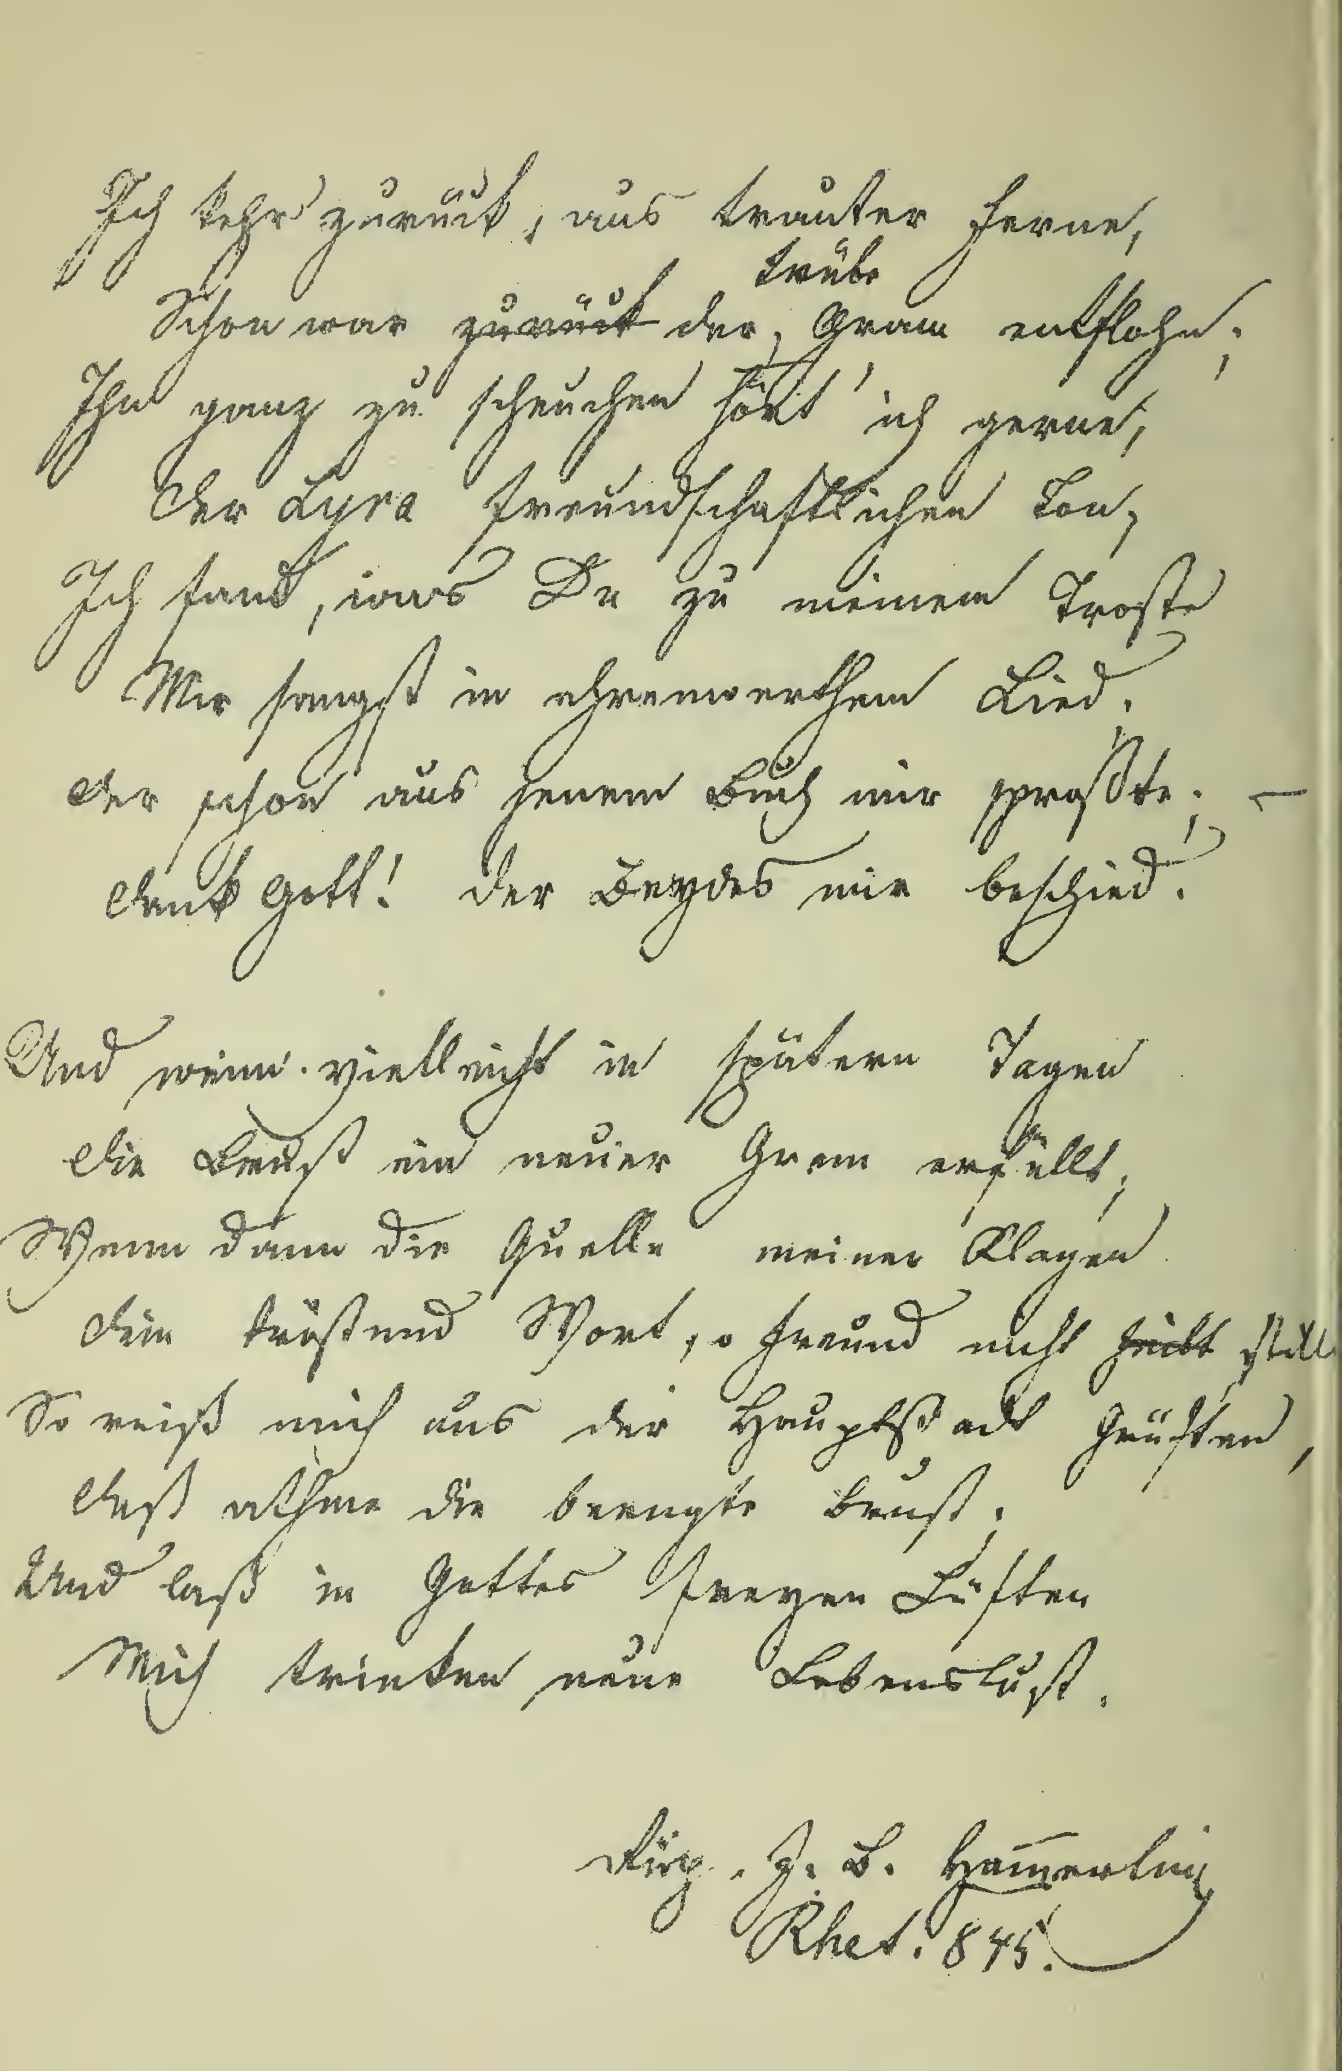 Ich kehr' zurück, aus trauter Ferne,
trübe
Schon war zurück der, Gram entflohn;
Ihn ganz zu scheuchen hört' ich gerne,
Der Lyra freundschaftlichen Ton,
Ich fand, was Du zu meinem Troste
Mir sangst in ehrenwerthem Lied;
Der schon aus jenem Buch mir sproßte; –
Dank Gott! der Beydes mir beschied.
Und wenn vielleicht in spätern Tagen
Die Brust ein neuer Gram erfüllt;
Wenn dann die Quelle meiner Klagen
Dein tröstend Wort, o Freund nicht stillt
So reiß mich aus der Hauptstadt Grüften,
Daß athme die beengte Brust;
Und laß in Gottes freyen Lüften
Mich trinken neue Lebenslust.
J. B. Ham̅erling
Rhet. 845.